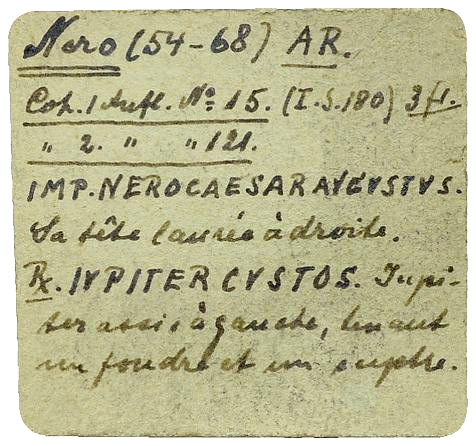 Nero (54-68) AR.
Coh. 1 Aufl. No 15. (I. S. 180) 3 fl.
" 2. " " 121.
IMP. NERO CAESAR AVGVSTVS.
Sa tête laurée à droite.
Rx. IVPITER CVSTOS. Jupi-
ter assis à gauche, tenant
un foudre et un sceptre.